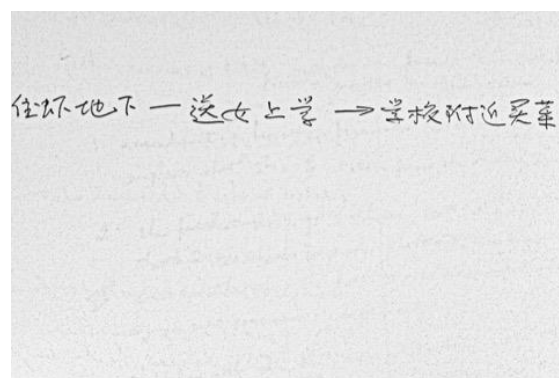 住环地下一送女上学→学校附近买菜